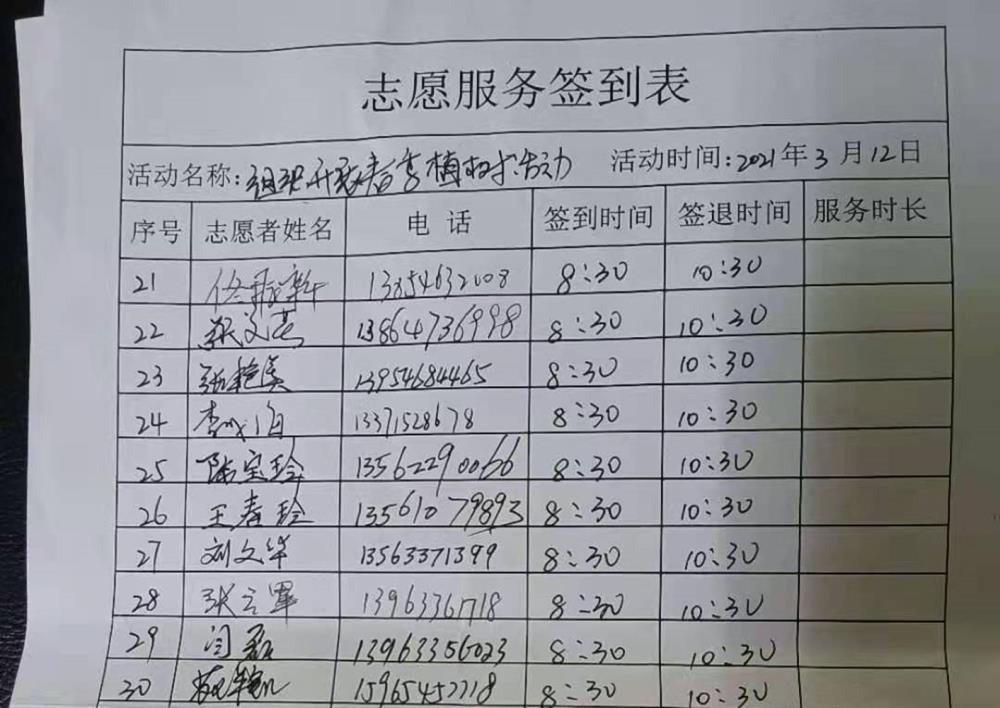 志愿服务签到表
活动名称:组织开展春季植树活动 活动时间:2021年3月12日
序号 志愿者姓名 电话 签到时间 签退时间 服务时长
21 佟 13854632008 8:30 10:30
22 张文 13864736998 8:30 10:30
23 张艳 13954684465 8:30 10:30
24 李 13371528678 8:30 10:30
25 陈宝玲 13562290066 8:30 10:30
26 王春玲 13561079893 8:30 10:30
27 刘文华 13563371399 8:30 10:30
28 张 8:30 10:30
29 闫磊 13963356023 8:30 10:30
30 8:30 10:30